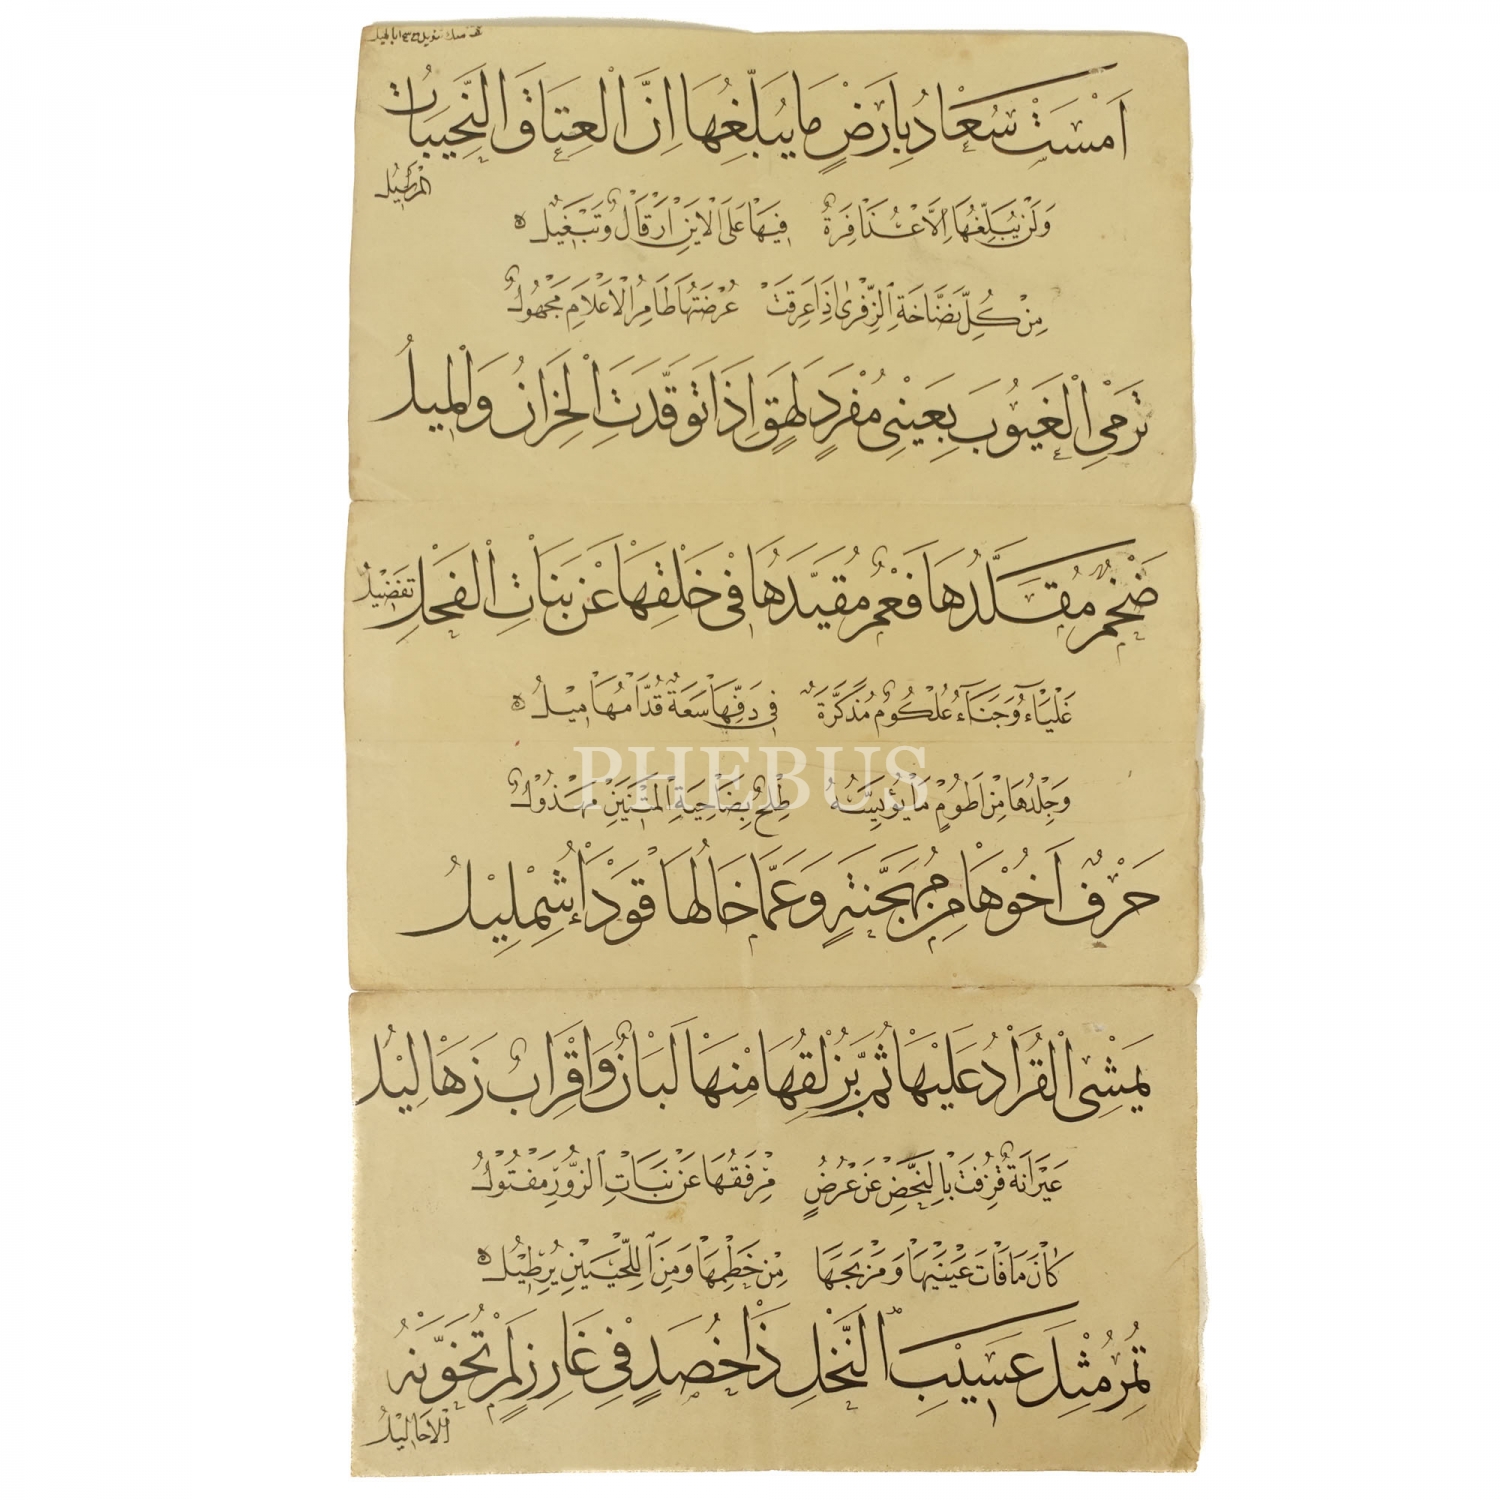 اَمْسَتْ سُعَادُ بِاَرْضٍ مَا يُبَلِّغُهَا اِنَّ الْعِتَاقَ النَّجِيبَاتُ
الْمَرَاسِيلُ
وَلَنْ يُبَلِّغُهَا اِلَّا عُذَافِرَةٌ فِيهَا عَلَى الْاَيْنِ اَرْقَالٌ وَتَبْغِيلُ
مِنْ كُلِّ نَضَّاخَةِ الزِّفْرَى اِذَا عَرِقَتْ عُرْضَتُهَا طَامِرُ الْاَعْلَامِ مَجْهُولُ
تَرْمِي الْغُيُوبَ بِعَيْنِي مُفْرَدٍ لَهِقٍ اِذَا تَوَقَّدَتِ الْحِزَانُ وَالْمِيلُ
ضَخْمٌ مُقَلَّدُهَا فَعْمٌ مُقَيَّدُهَا فِي خَلْقِهَا عَنْ بَنَاتِ الْفَحْلِ تَفْضِيلُ
غَلْبَاءُ وَجْنَاءُ عُلْكُومٌ مُذَكَّرَةٌ فِي دَفِّهَا سَعَةٌ قُدَّامُهَا مِيلُ
وَجِلْدُهَا مِنْ اَطُومٍ مَا يُؤَيِّسُهُ طِلْحٌ بِضَاحِيَةِ الْمَتْنَيْنِ مَهْذُولُ
حَرْفٌ اَخُوهَا مِنْ مُهَجَّنَةٍ وَعَمَّا خَالُهَا قَوْدَاءُ شِمْلِيلُ
يَمْشِي الْقُرَادُ عَلَيْهَا ثُمَّ يُزْلِقُهَا مِنْهَا لَبَانٌ وَاَقْرَابٌ زَهَالِيلُ
عَيْرَانَةٌ قُذِفَتْ بِالنَّحْضِ عَنْ عُرُضٍ مِرْفَقُهَا عَنْ بَنَاتِ الزُّورِ مَفْتُولُ
كَاَنَّ مَا فَاتَ عَيْنَيْهَا وَمَذْبَحَهَا مِنْ خَطْمِهَا وَمِنَ اللَّحْيَيْنِ بِرْطِيلُ
تُمِرُّ مِثْلَ عَسِيبِ النَّخْلِ ذَا خُصَلٍ فِي غَارِزٍ لَمْ تُخَوِّنْهُ
الْاَحَالِيلُ
PHEBUS